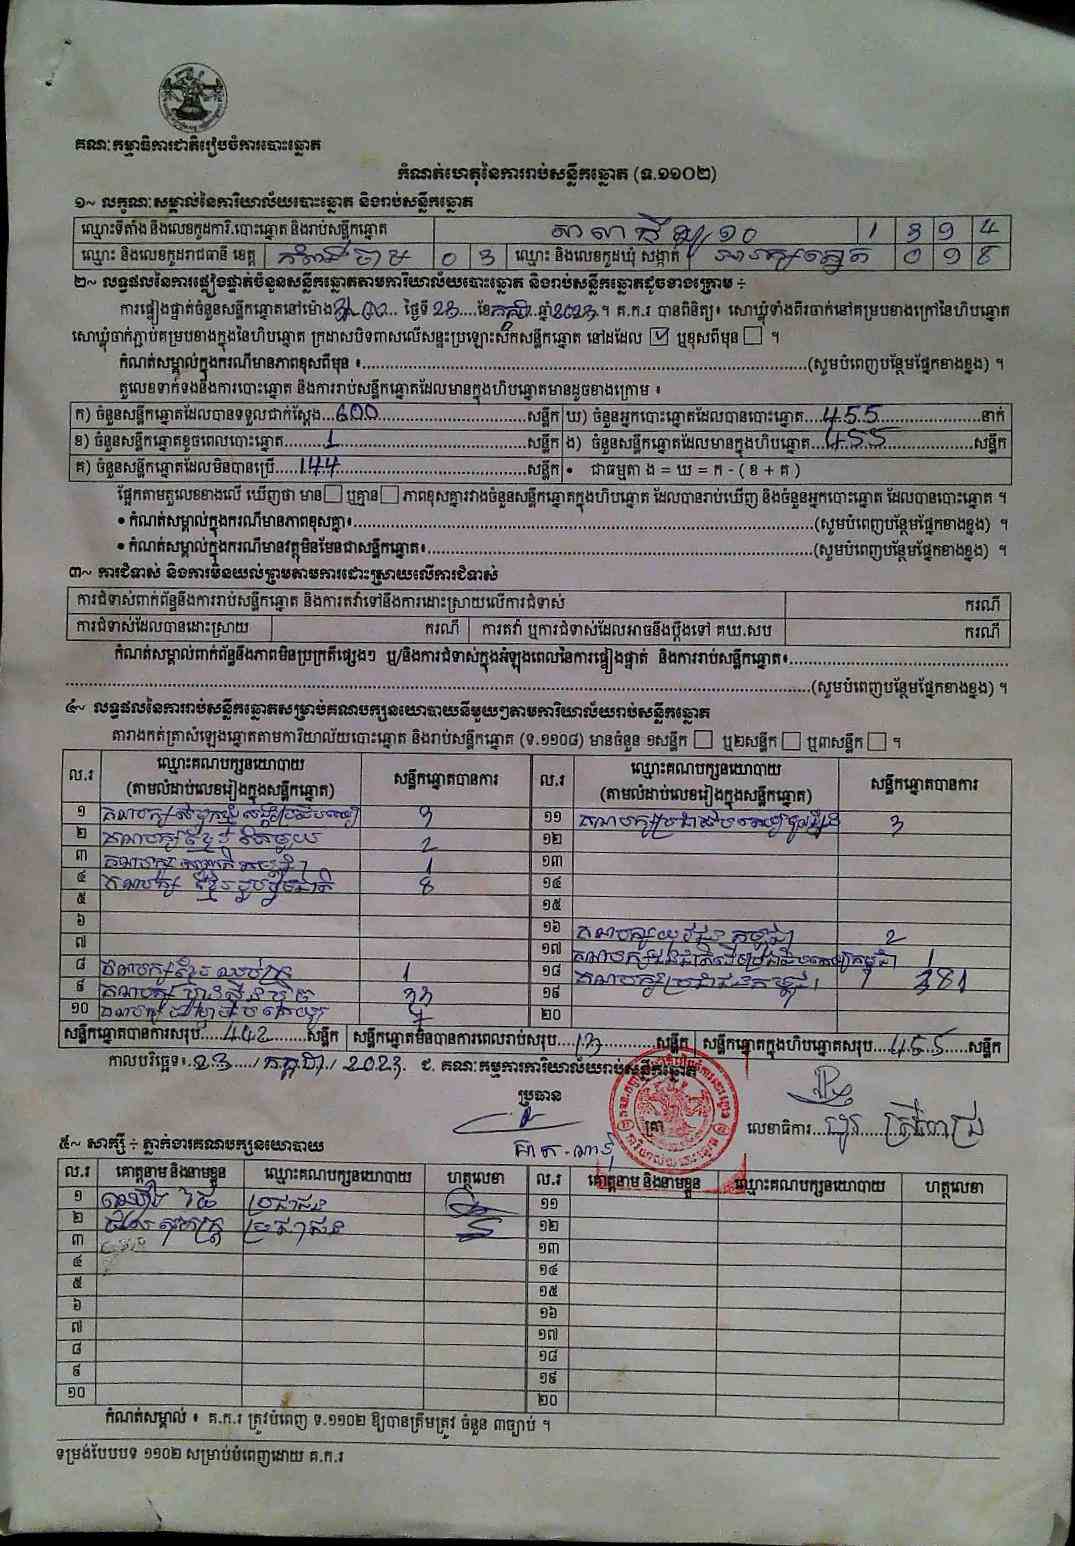 គណៈកម្មាធិការជាតិរៀបចំការបោះឆ្នោត
កំណត់ហេតុនៃការរាប់សន្លឹកឆ្នោត (ទ.១១០២)
១~ លក្ខណៈសម្គាល់នៃការិយាល័យបោះឆ្នោត និងរាប់សន្លឹកឆ្នោត
ឈ្មោះទីតាំង និងលេខកូដការិ.បោះឆ្នោត និងរាប់សន្លឹកឆ្នោត 1 3 9 4
ឈ្មោះ និងលេខកូដរាជធានី ខេត្ត កំពង់ចាម 0 3 ឈ្មោះ និងលេខកូដឃុំ សង្កាត់
២~ លទ្ធផលនៃការផ្ទៀងផ្ទាត់ចំនួនសន្លឹកឆ្នោតតាមការិយាល័យបោះឆ្នោត និងរាប់សន្លឹកឆ្នោតដូចខាងក្រោម ÷
ការផ្ទៀងផ្ទាត់ចំនួនសន្លឹកឆ្នោតនៅម៉ោង ថ្ងៃទី 23 ខែ កក្កដា ឆ្នាំ 2023 ។ គ.ក.រ បានពិនិត្យ៖ សោឃ្លុំទាំងពីរចាក់នៅគម្របខាងក្រៅនៃហិបឆ្នោត
សោឃ្លុំចាក់ភ្ជាប់គម្របខាងក្នុងនៃហិបឆ្នោត ក្រដាសបិទពាសលើសន្ទះប្រឡោះសឹកសន្លឹកឆ្នោត នៅដដែល ☑ ឬខុសពីមុន ☐ ។
កំណត់សម្គាល់ក្នុងករណីមានភាពខុសពីមុន ៖ (សូមបំពេញបន្ថែមផ្នែកខាងខ្នង) ។
តួលេខទាក់ទងនឹងការបោះឆ្នោត និងការរាប់សន្លឹកឆ្នោតដែលមានក្នុងហិបឆ្នោតមានដូចខាងក្រោម ៖
ក) ចំនួនសន្លឹកឆ្នោតដែលបានទទួលជាក់ស្តែង 600 សន្លឹក ឃ) ចំនួនអ្នកបោះឆ្នោតដែលបានបោះឆ្នោត 455 នាក់
ខ) ចំនួនសន្លឹកឆ្នោតខូចពេលបោះឆ្នោត 1 សន្លឹក ង) ចំនួនសន្លឹកឆ្នោតដែលមានក្នុងហិបឆ្នោត 455 សន្លឹក
គ) ចំនួនសន្លឹកឆ្នោតដែលមិនបានប្រើ 144 សន្លឹក • ជាធម្មតា ង = ឃ = ក - ( ខ + គ )
ផ្អែកតាមតួលេខខាងលើ ឃើញថា មាន ☐ ឬគ្មាន ☐ ភាពខុសគ្នារវាងចំនួនសន្លឹកឆ្នោតក្នុងហិបឆ្នោត ដែលបានរាប់ឃើញ និងចំនួនអ្នកបោះឆ្នោត ដែលបានបោះឆ្នោត ។
• កំណត់សម្គាល់ក្នុងករណីមានភាពខុសគ្នា៖ (សូមបំពេញបន្ថែមផ្នែកខាងខ្នង) ។
• កំណត់សម្គាល់ក្នុងករណីមានវត្ថុមិនមែនជាសន្លឹកឆ្នោត៖ (សូមបំពេញបន្ថែមផ្នែកខាងខ្នង) ។
៣~ ការជំទាស់ និងការមិនយល់ព្រមតាមការដោះស្រាយលើការជំទាស់
ការជំទាស់ពាក់ព័ន្ធនឹងការរាប់សន្លឹកឆ្នោត និងការតវ៉ាទៅនឹងការដោះស្រាយលើការជំទាស់ ករណី
ការជំទាស់ដែលបានដោះស្រាយ ករណី ការតវ៉ា ឬការជំទាស់ដែលអាចនឹងប្តឹងទៅ គឃ.សប ករណី
កំណត់សម្គាល់ពាក់ព័ន្ធនឹងភាពមិនប្រក្រតីផ្សេងៗ ឬ/និងការជំទាស់ក្នុងអំឡុងពេលនៃការផ្ទៀងផ្ទាត់ និងការរាប់សន្លឹកឆ្នោត៖
(សូមបំពេញបន្ថែមផ្នែកខាងខ្នង) ។
៤~ លទ្ធផលនៃការរាប់សន្លឹកឆ្នោតសម្រាប់គណបក្សនយោបាយនីមួយៗតាមការិយាល័យរាប់សន្លឹកឆ្នោត
តារាងកត់ត្រាសំឡេងឆ្នោតតាមការិយាល័យបោះឆ្នោត និងរាប់សន្លឹកឆ្នោត (ទ.១១០៨) មានចំនួន ១សន្លឹក ☐ ឬ២សន្លឹក ☐ ឬ៣សន្លឹក ☐ ។
ល.រ ឈ្មោះគណបក្សនយោបាយ (តាមលំដាប់លេខរៀងក្នុងសន្លឹកឆ្នោត) សន្លឹកឆ្នោតបានការ ល.រ ឈ្មោះគណបក្សនយោបាយ (តាមលំដាប់លេខរៀងក្នុងសន្លឹកឆ្នោត) សន្លឹកឆ្នោតបានការ
១ គណបក្ស 3 ១១ គណបក្ស 3
២ គណបក្ស ខ្មែរ រួមតែមួយ 2 ១២
៣ គណបក្ស 1 ១៣
៤ គណបក្ស ខ្មែរ រួបរួមជាតិ 8 ១៤
៥ ១៥
៦ ១៦ គណបក្សយុវជន កម្ពុជា 2
៧ ១៧ គណបក្ស 1
៨ គណបក្សខ្មែរ 1 ១៨ គណបក្សប្រជាជនកម្ពុជា 381
៩ គណបក្ស ហ្វ៊ុនស៊ិនប៉ិច 33 ១៩
១០ គណបក្ស 7 ២០
សន្លឹកឆ្នោតបានការសរុប 442 សន្លឹក សន្លឹកឆ្នោតមិនបានការពេលរាប់សរុប 13 សន្លឹក សន្លឹកឆ្នោតក្នុងហិបឆ្នោតសរុប 455 សន្លឹក
កាលបរិច្ឆេទ៖ 23 / កក្កដា / 2023 ជ. គណៈកម្មការការិយាល័យរាប់សន្លឹកឆ្នោត
ប្រធាន
ត្រា
លេខាធិការ
៥~ សាក្សី ÷ ភ្នាក់ងារគណបក្សនយោបាយ
ល.រ គោត្តនាម និងនាមខ្លួន ឈ្មោះគណបក្សនយោបាយ ហត្ថលេខា ល.រ គោត្តនាម និងនាមខ្លួន ឈ្មោះគណបក្សនយោបាយ ហត្ថលេខា
១ ប្រជាជន ១១
២ ប្រជាជន ១២
៣ ១៣
៤ ១៤
៥ ១៥
៦ ១៦
៧ ១៧
៨ ១៨
៩ ១៩
១០ ២០
កំណត់សម្គាល់ ៖ គ.ក.រ ត្រូវបំពេញ ទ.១១០២ ឱ្យបានត្រឹមត្រូវ ចំនួន ៣ច្បាប់ ។
ទម្រង់បែបបទ ១១០២ សម្រាប់បំពេញដោយ គ.ក.រ